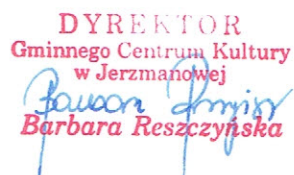 DYREKTOR
Gminnego Centrum Kultury
w Jerzmanowej
Barbara Reszczyńska